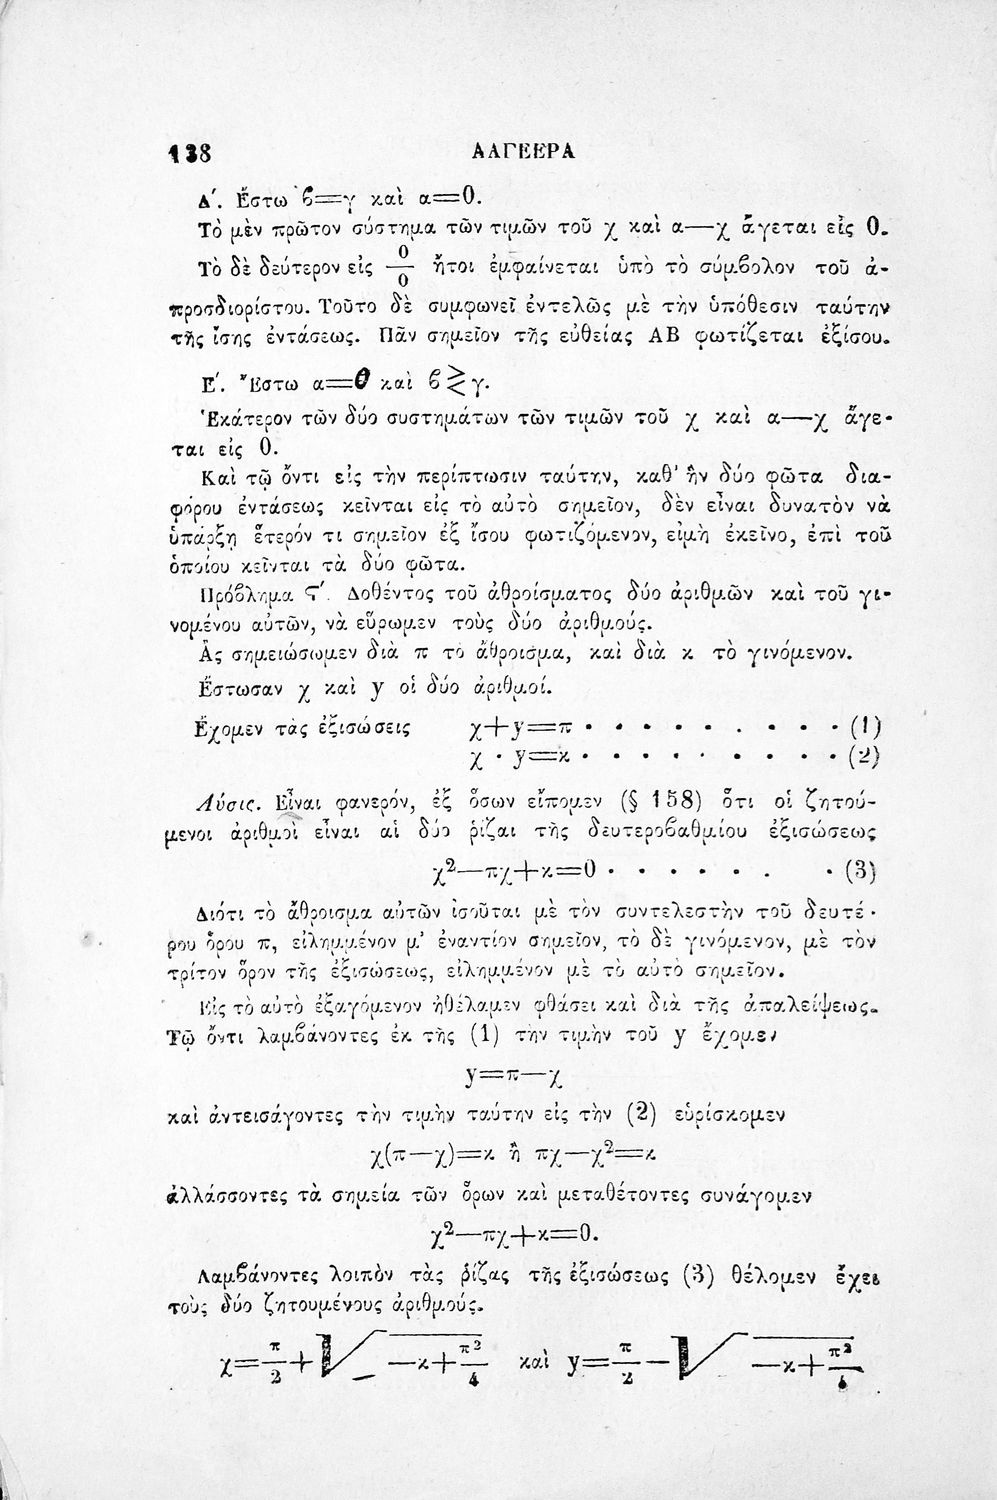 138 ΑΛΓΕΒΡΑ
Δ΄. Ἔστω ϐ=γ καὶ α=0.
Τὸ μὲν πρῶτον σύστημα τῶν τιμῶν τοῦ χ καὶ α—χ ἄγεται εἰς 0.
Τὸ δὲ δεύτερον εἰς 0/0 ἤτοι ἐμφαίνεται ὑπὸ τὸ σύμϐολον τοῦ ἀ-
προσδιορίστου. Τοῦτο δὲ συμφωνεῖ ἐντελῶς μὲ τὴν ὑπόθεσιν ταύτην
τῆς ἴσης ἐντάσεως. Πᾶν σημεῖον τῆς εὐθείας ΑΒ φωτίζεται ἐξίσου.
Ε΄. Ἔστω α=0 καὶ ϐ≷γ.
Ἑκάτερον τῶν δύο συστημάτων τῶν τιμῶν τοῦ χ καὶ α—χ ἄγε-
ται εἰς 0.
Καὶ τῷ ὄντι εἰς τὴν περίπτωσιν ταύτην, καθ' ἣν δύο φῶτα δια-
φόρου ἐντάσεως κεῖνται εἰς τὸ αὐτὸ σημεῖον, δὲν εἶναι δυνατὸν νὰ
ὑπάρξῃ ἕτερόν τι σημεῖον ἐξ ἴσου φωτιζόμενον, εἰμὴ ἐκεῖνο, ἐπὶ τοῦ
ὁποίου κεῖνται τὰ δύο φῶτα.
Πρόϐλημα Ϛ΄. Δοθέντος τοῦ ἀθροίσματος δύο ἀριθμῶν καὶ τοῦ γι-
νομένου αὐτῶν, νὰ εὕρωμεν τοὺς δύο ἀριθμούς.
Ἂς σημειώσωμεν διὰ π τὸ ἄθροισμα, καὶ διὰ κ τὸ γινόμενον.
Ἔστωσαν χ καὶ y οἱ δύο ἀριθμοί.
Ἔχομεν τὰς ἐξισώσεις χ+y=π . . . . . . . . . (1)
χ · y=κ . . . . . . . . . (2)
Λύσις. Εἶναι φανερόν, ἐξ ὅσων εἴπομεν (§ 158) ὅτι οἱ ζητού-
μενοι ἀριθμοὶ εἶναι αἱ δύο ῥίζαι τῆς δευτεροϐαθμίου ἐξισώσεως
χ²—πχ+κ=0 . . . . . . . (3)
Διότι τὸ ἄθροισμα αὐτῶν ἰσοῦται μὲ τὸν συντελεστὴν τοῦ δευτέ-
ρου ὅρου π, εἰλημμένον μ' ἐναντίον σημεῖον, τὸ δὲ γινόμενον, μὲ τὸν
τρίτον ὅρον τῆς ἐξισώσεως, εἰλημμένον μὲ τὸ αὐτὸ σημεῖον.
Εἰς τὸ αὐτὸ ἐξαγόμενον ἠθέλαμεν φθάσει καὶ διὰ τῆς ἀπαλείψεως.
Τῷ ὄντι λαμϐάνοντες ἐκ τῆς (1) τὴν τιμὴν τοῦ y ἔχομεν
y=π—χ
καὶ ἀντεισάγοντες τὴν τιμὴν ταύτην εἰς τὴν (2) εὑρίσκομεν
χ(π—χ)=κ ἢ πχ—χ²=κ
ἀλλάσσοντες τὰ σημεία τῶν ὅρων καὶ μεταθέτοντες συνάγομεν
χ²—πχ+κ=0.
Λαμϐάνοντες λοιπὸν τὰς ῥίζας τῆς ἐξισώσεως (3) θέλομεν ἔχει
τοὺς δύο ζητουμένους ἀριθμούς.
χ=π/2+√—κ+π²/4 καὶ y=π/2—√—κ+π²/4